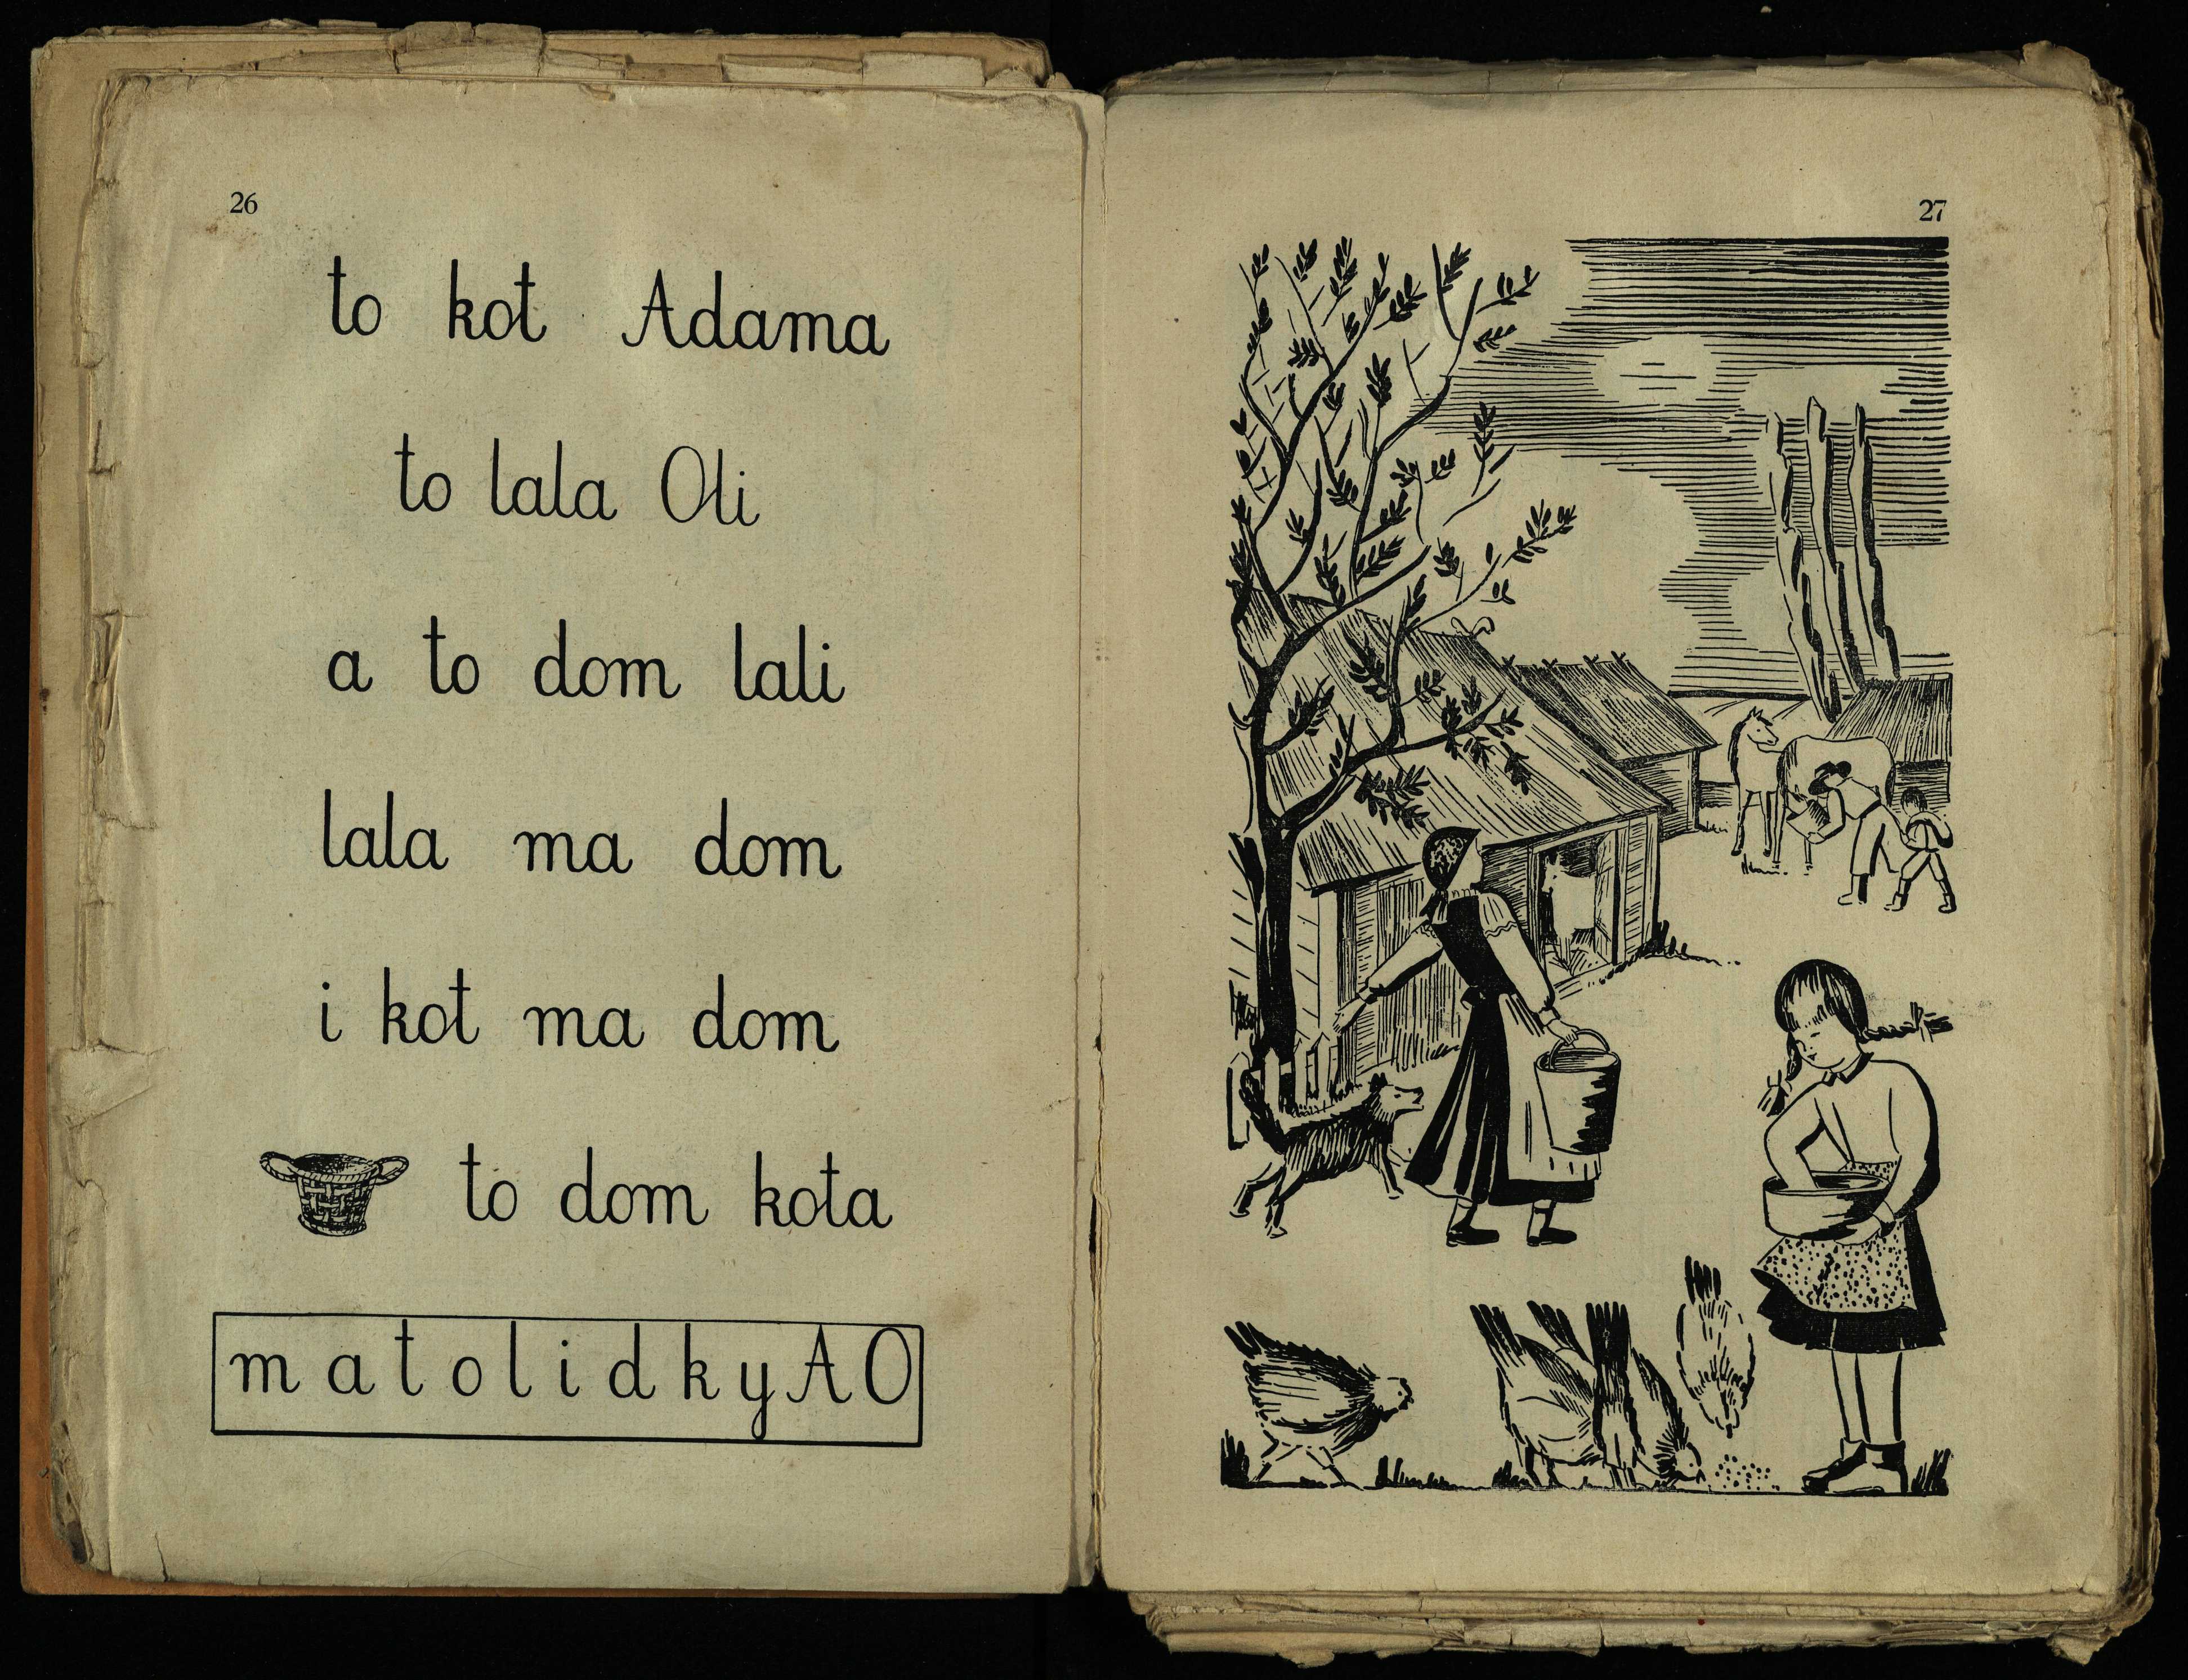 26
to kot Adama
to lala Oli
a to dom lali
lala ma dom
i kot ma dom
to dom kota
m a t o l i d k y A O
27